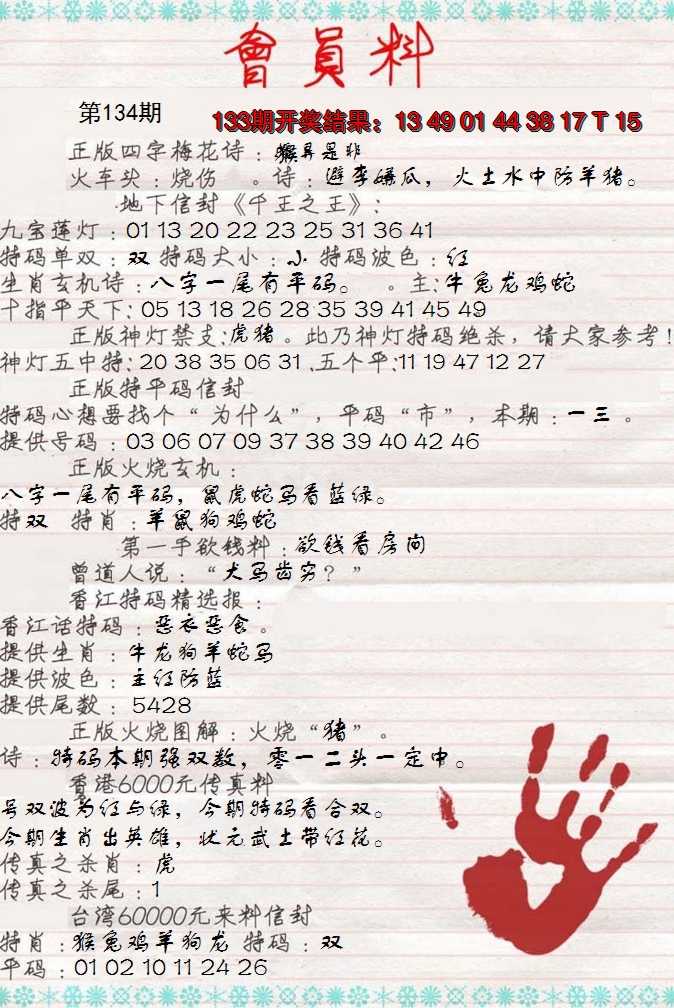 會員料
第134期
133期开奖结果：13 49 01 44 38 17 T 15
正版四字梅花诗：猴昇是非
火车头：烧伤 。诗：避李嫌瓜，火土水中防羊猪。
地下信封《千王之王》：
九宝莲灯：01 13 20 22 23 25 31 36 41
特码单双：双 特码大小：小 特码波色：红
生肖玄机诗：八字一尾有平码。 。主：牛兔龙鸡蛇
十指平天下：05 13 18 26 28 35 39 41 45 49
正版神灯禁支：虎猪。此乃神灯特码绝杀，请大家参考！
神灯五中特：20 38 35 06 31 .五个平：11 19 47 12 27
正版特平码信封
特码心想要找个“为什么”，平码“市”，本期：一三 。
提供号码：03 06 07 09 37 38 39 40 42 46
正版火烧玄机：
八字一尾有平码，鼠虎蛇马看蓝绿。
特双 特肖：羊鼠狗鸡蛇
第一手欲钱料：欲钱看房间
曾道人说：“犬马齿穷？”
香江特码精选报：
香江话特码：恶衣恶食。
提供生肖：牛龙狗羊蛇马
提供波色：主红防蓝
提供尾数：5428
正版火烧图解：火烧“猪”。
诗：特码本期强双数，零一二头一定中。
香港6000元传真料
号双波为红与绿，今期特码看合双。
今期生肖出英雄，状元武士带红花。
传真之杀肖：虎
传真之杀尾：1
台湾60000元来料信封
特肖：猴兔鸡羊狗龙 特码：双
平码：01 02 10 11 24 26